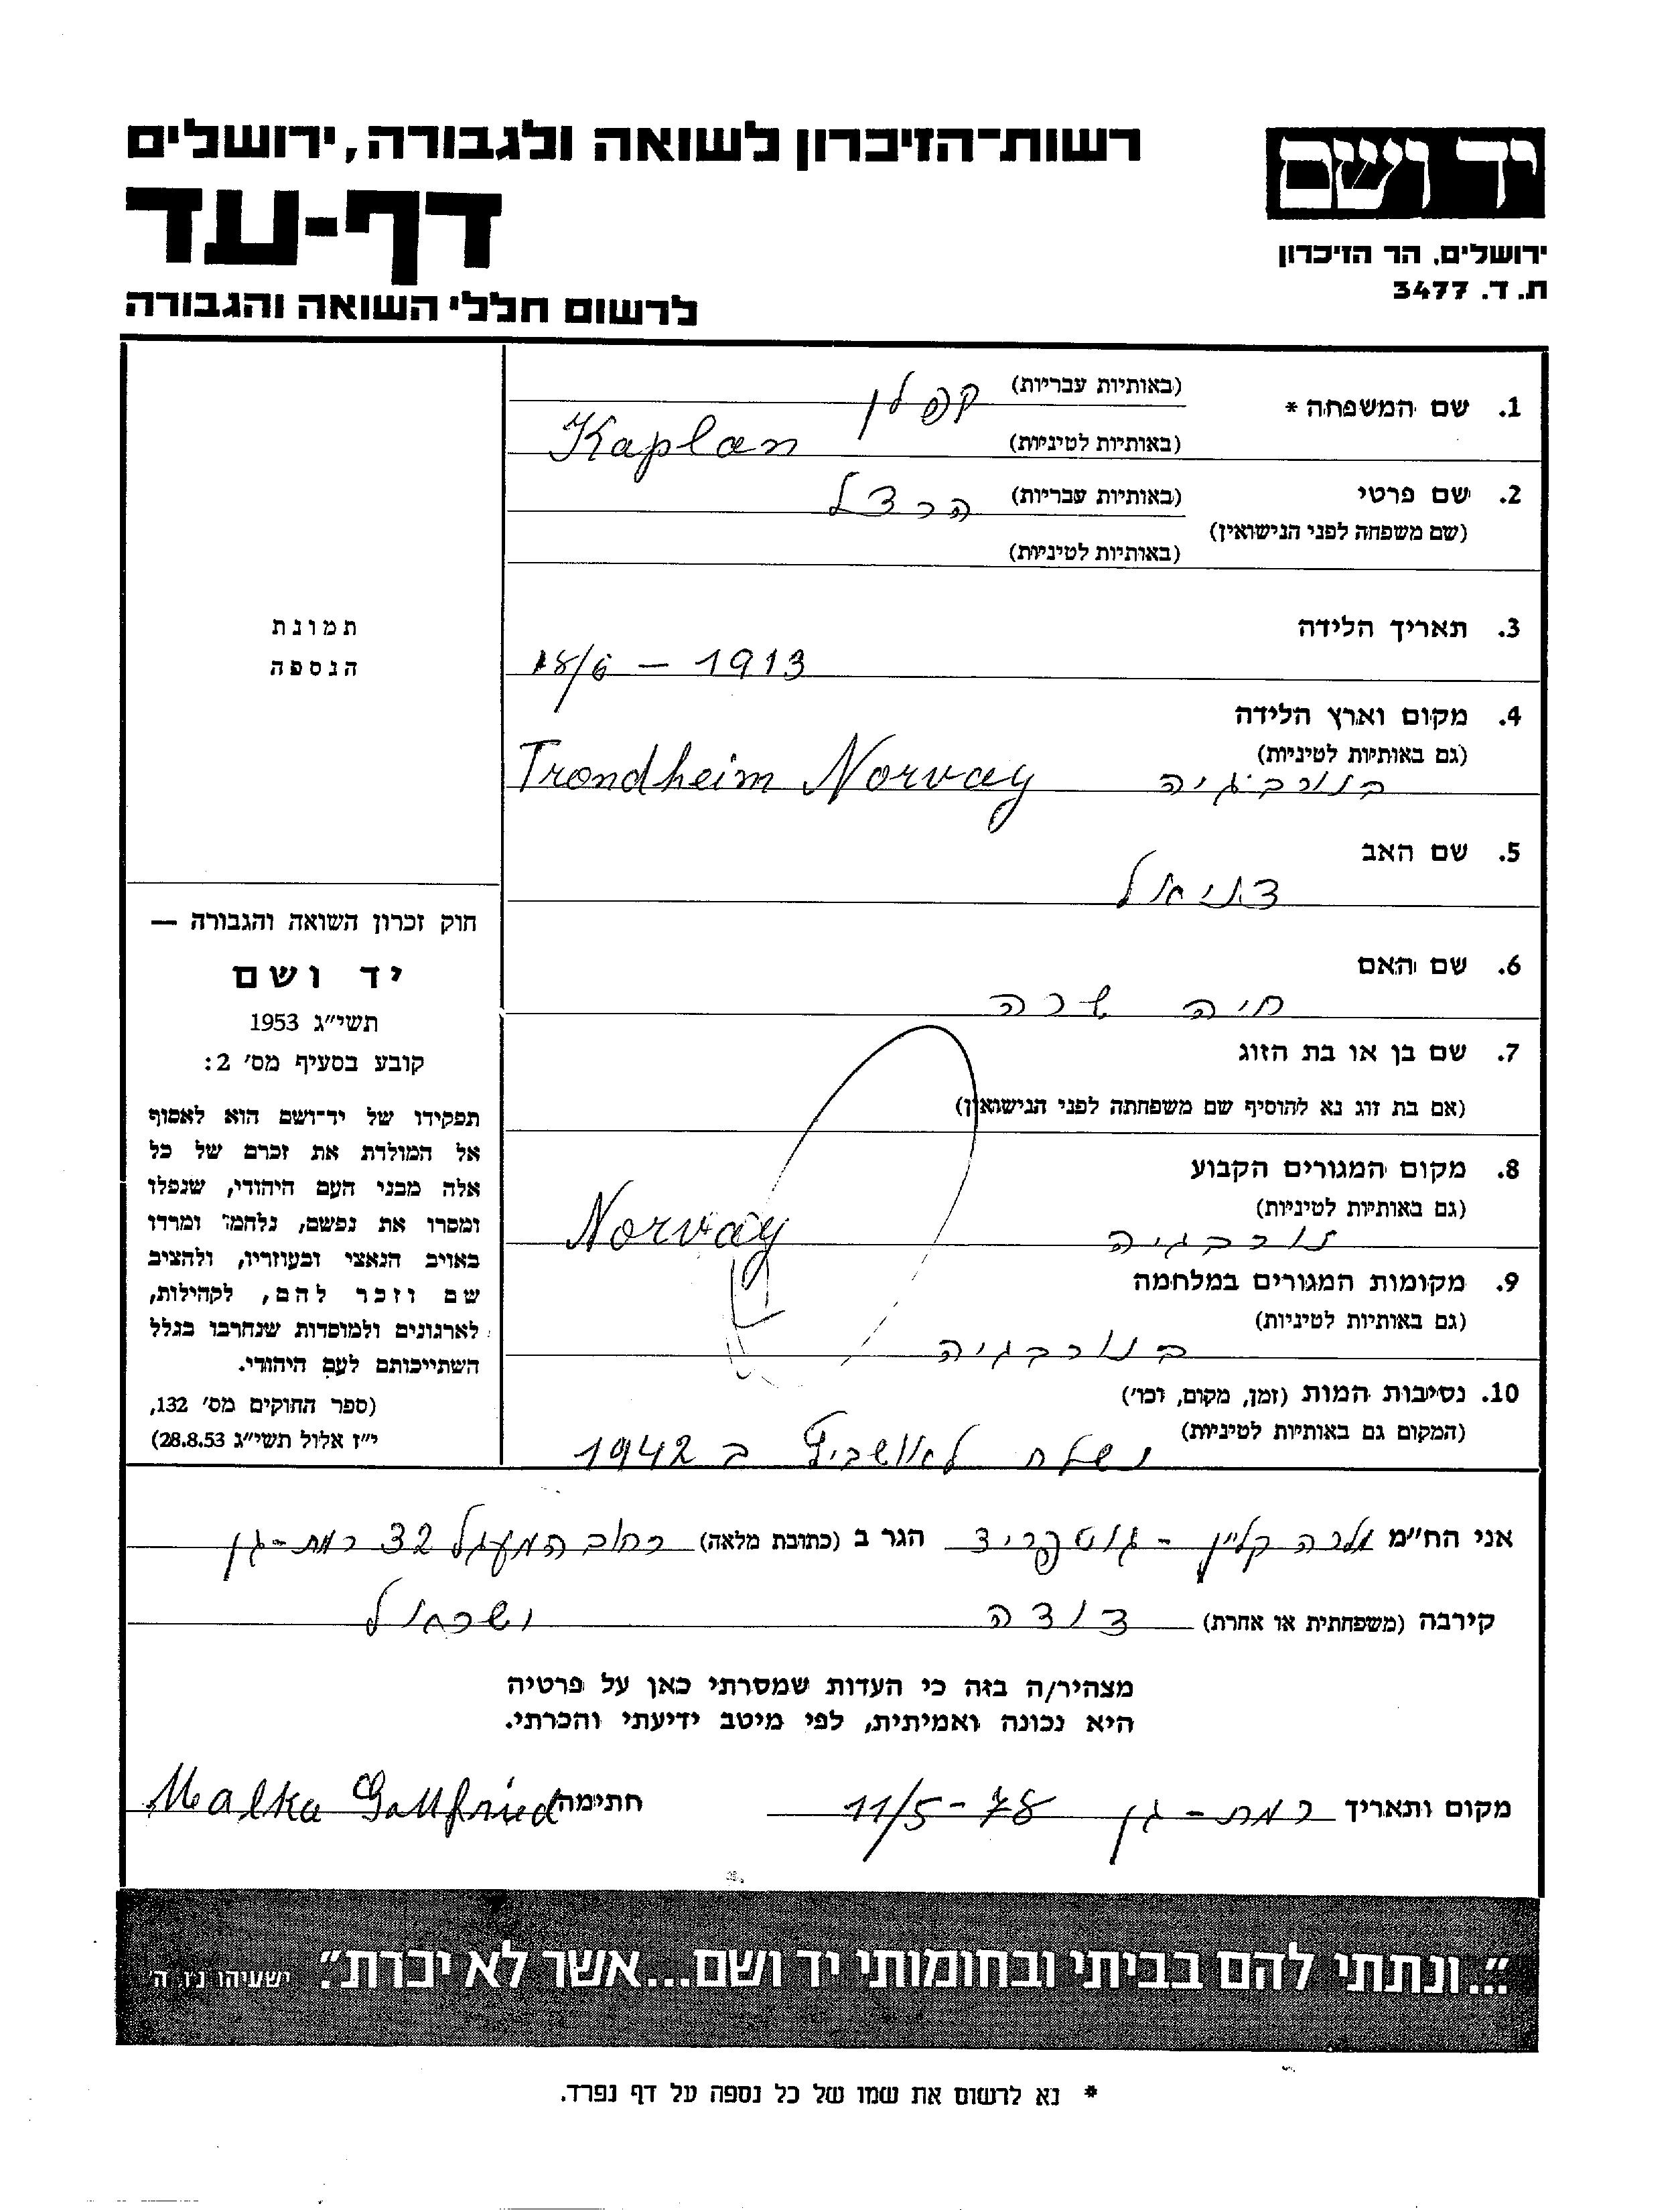 יד ושם
ירושלים, הר הזיכרון
ת. ד. 3477
רשות־הזיכרון לשואה ולגבורה, ירושלים
דף-עד
לרשום חללי השואה והגבורה
1. שם המשפחה *
(באותיות עבריות) קפלן
(באותיות לטיניות) Kaplan
2. שם פרטי
(שם משפחה לפני הנישואין)
(באותיות עבריות) הרצל
(באותיות לטיניות)
3. תאריך הלידה
18/6 - 1913
4. מקום וארץ הלידה
(גם באותיות לטיניות)
בנורבגיה Trondheim Norvay
5. שם האב
דניאל
6. שם האם
חיה שרה
7. שם בן או בת הזוג
(אם בת זוג נא להוסיף שם משפחתה לפני הנישואין)
8. מקום המגורים הקבוע
(גם באותיות לטיניות)
נורבגיה Norvay
9. מקומות המגורים במלחמה
(גם באותיות לטיניות)
בנורבגיה
10. נסיבות המות (זמן, מקום, וכו')
(המקום גם באותיות לטיניות)
נשלח לאושביץ ב 1942
תמונת
הנספה
חוק זכרון השואה והגבורה —
יד ושם
תשי"ג 1953
קובע בסעיף מס' 2:
תפקידו של יד־ושם הוא לאסוף
אל המולדת את זכרם של כל
אלה מבני העם היהודי, שנפלו
ומסרו את נפשם, נלחמו ומרדו
באויב הנאצי ובעוזריו, ולהציב
שם וזכר להם, לקהילות,
לארגונים ולמוסדות שנחרבו בגלל
השתייכותם לעם היהודי.
(ספר החוקים מס' 132,
י"ז אלול תשי"ג 28.8.53)
אני הח"מ מלכה קליין - גוטפריד הגר ב (כתובת מלאה) רחוב המעגל 32 רמת-גן
קירבה (משפחתית או אחרת) דודה ישראל
מצהיר/ה בזה כי העדות שמסרתי כאן על פרטיה
היא נכונה ואמיתית, לפי מיטב ידיעתי והכרתי.
מקום ותאריך רמת-גן 11/5-78 חתימה Malka Gottfried
"...ונתתי להם בביתי ובחומותי יד ושם...אשר לא יכרת". ישעיהו נו, ה'
* נא לרשום את שמו של כל נספה על דף נפרד.